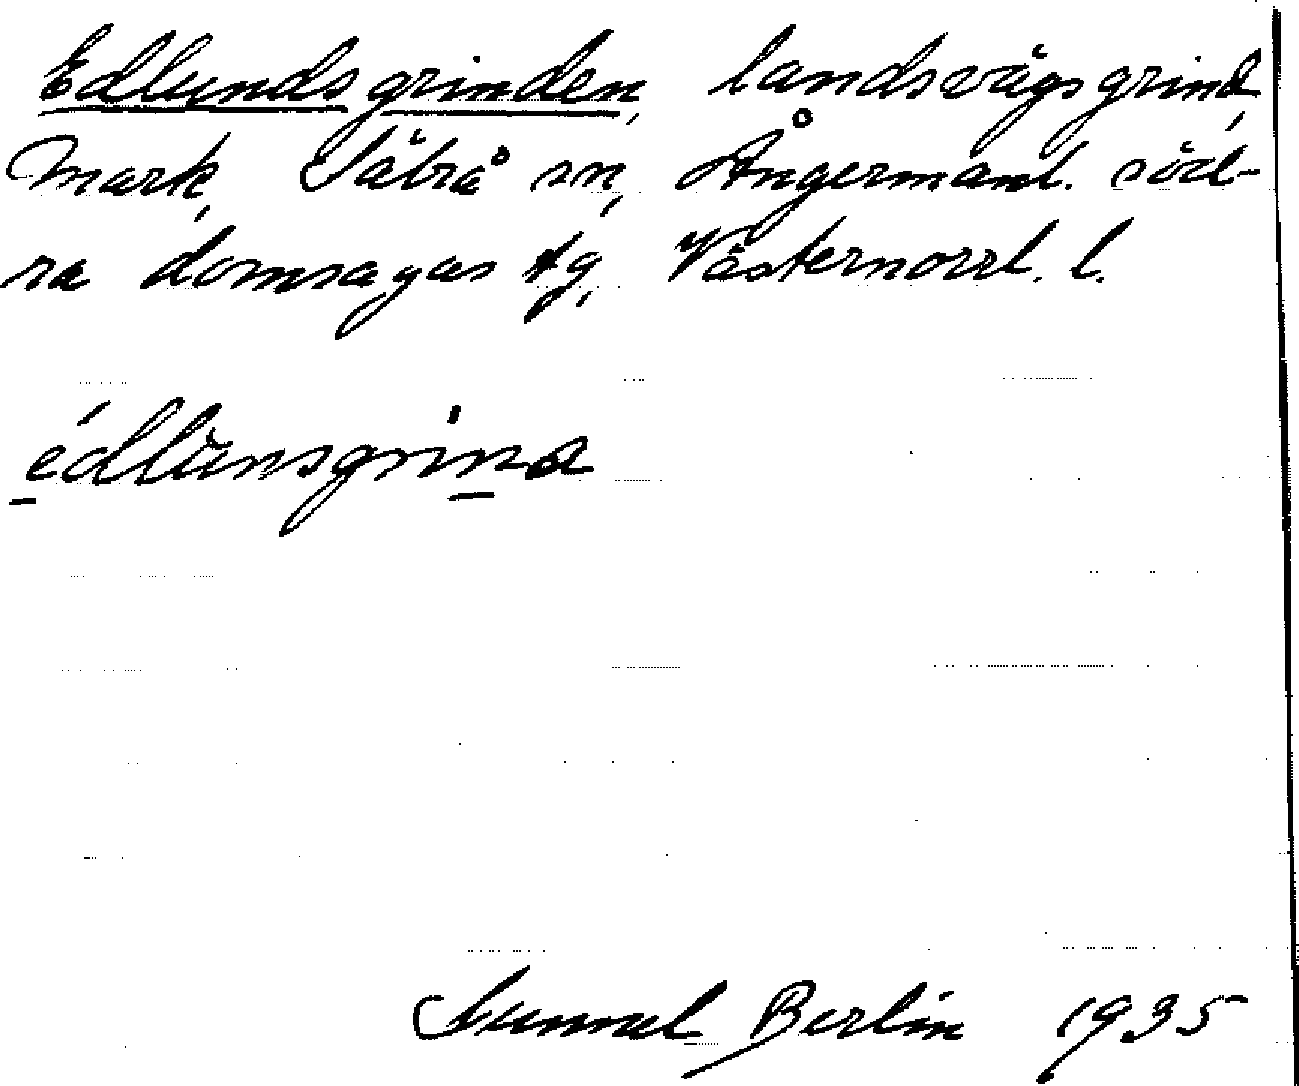 Edlundsgrinden, landsvägsgrind,
Mark, Säbrå sn, Ångermanl. söd-
ra domsagas tg, Västernorrl. l.
édlünsgrina
Gunnel Berlin 1935